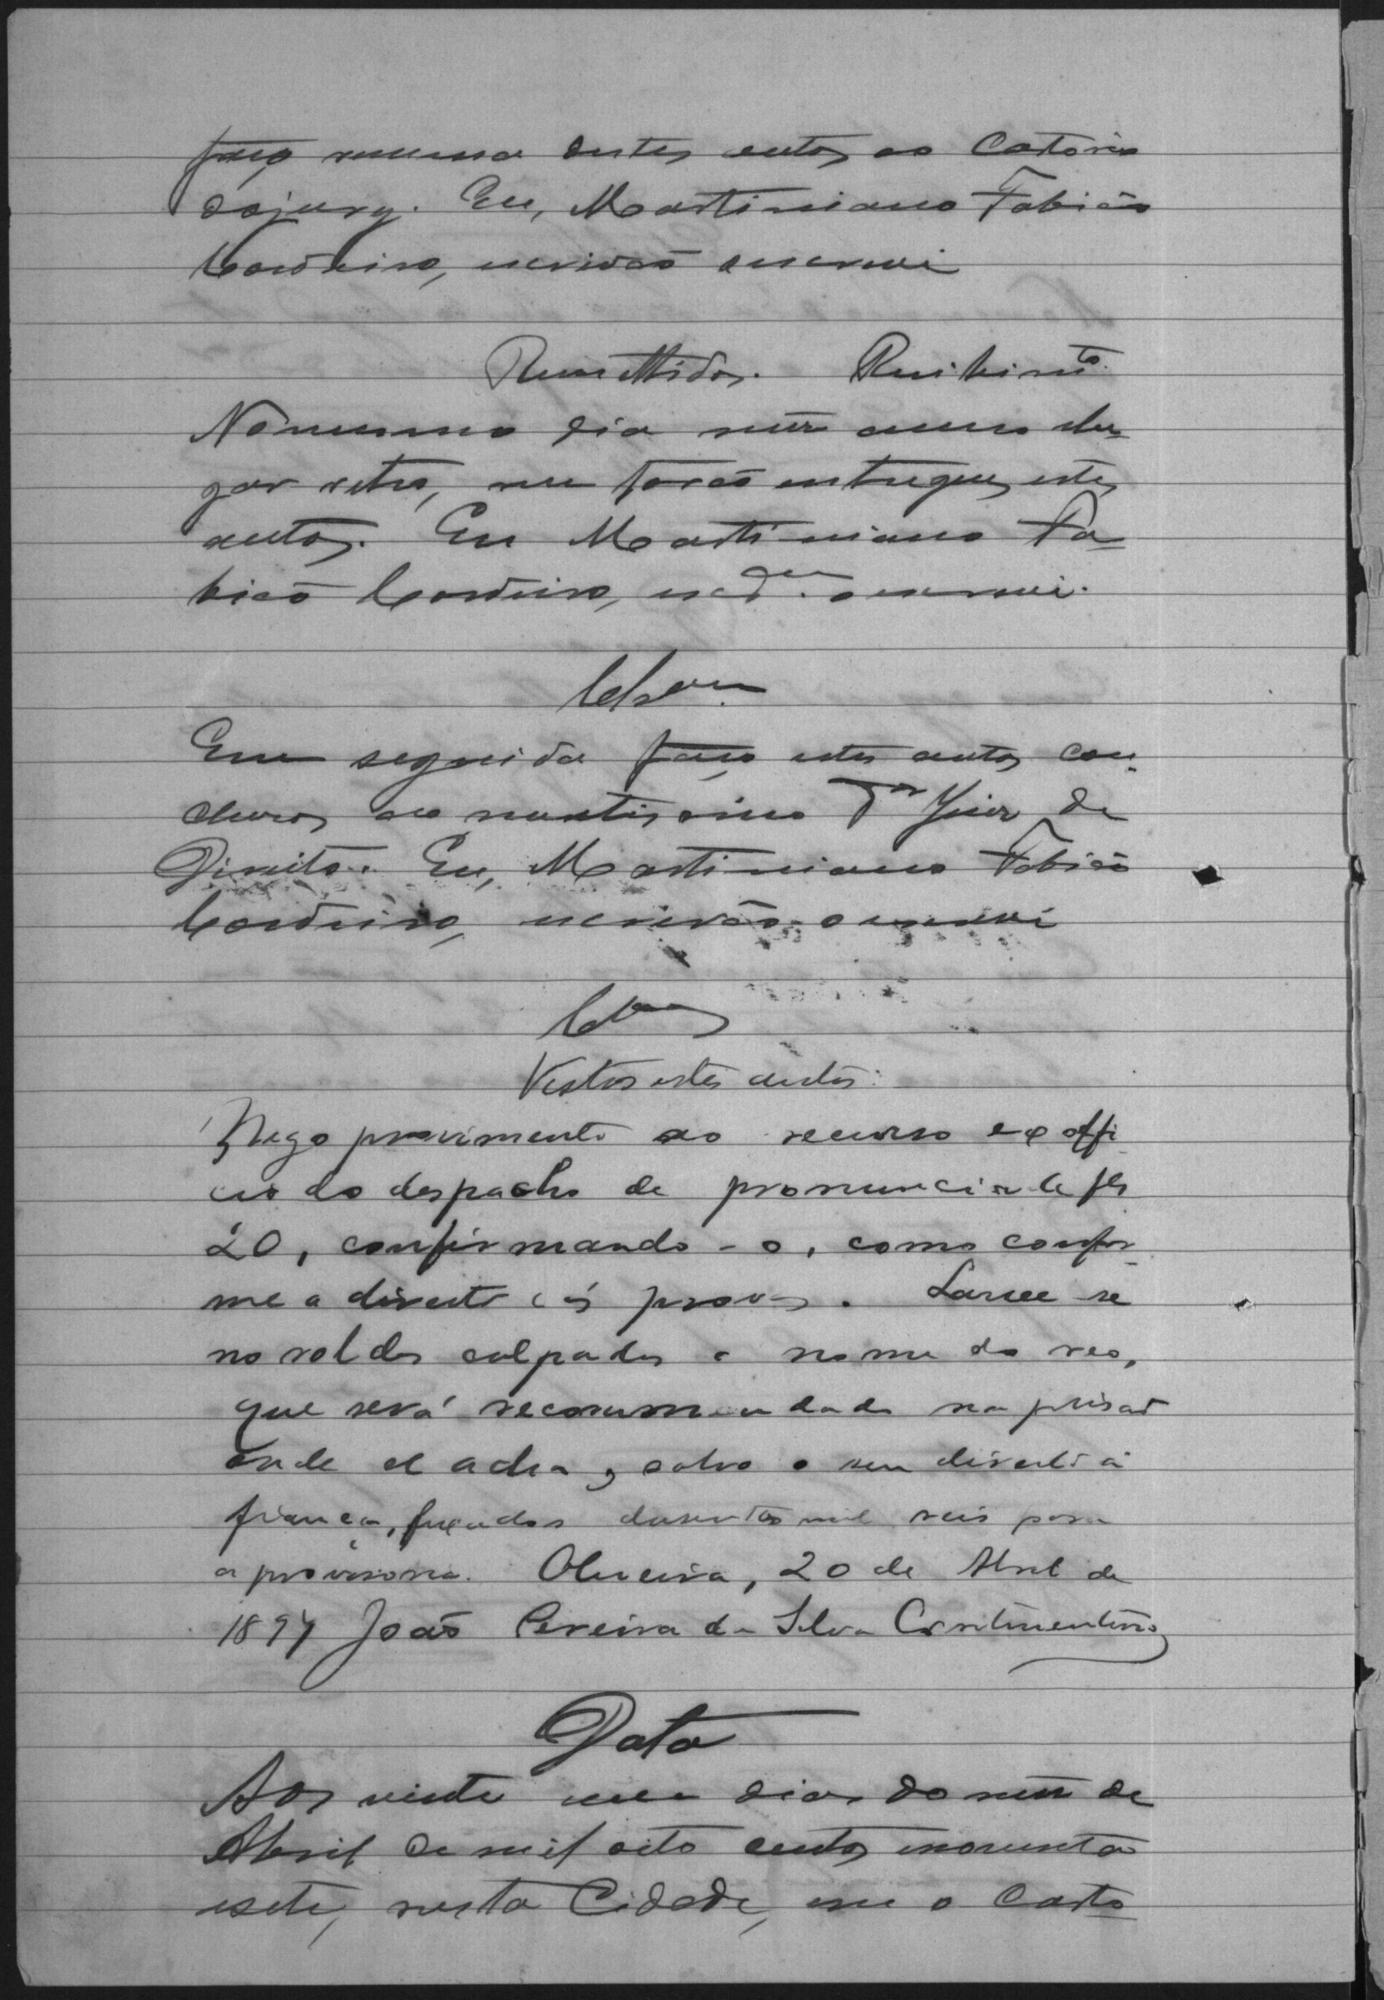 faço remessa destes autos ao Cartorio
do jury. Eu, Martiniano Fabião
Cordeiro, escrivão o escrevi
Remettidos. Recebim.to
No mesmo dia mez anno e lu-
gar retro, me forão entregues estes
autos. Eu Martiniano Fa-
bião Cordeiro, escr.am o escrevi.
Clsam.
Em seguida faço estes autos con-
clusos ao meritissimo Dr Juiz de
Direito. Eu, Martiniano Fabião
Cordeiro, escrivão o escrevi
Clsos
Vistos estes autos:
Nego provimento ao recurso ex offi
cio do despacho de pronuncia de fls
20, confirmando-o, como confor-
me a direito e ás provas. Lance-se
no rol dos culpados o nome do reo,
que será recommendado na prisão
onde se acha, salvo o seu direito á
fiança, fixados duzentos mil reis para
a provisoria. Oliveira, 20 de Abril de
1897 João Pereira da Silva Continentino
Data
Aos vinte um dias do mez de
Abril de mil oito centos enoventa
esete, nesta Cidade, em o Carto